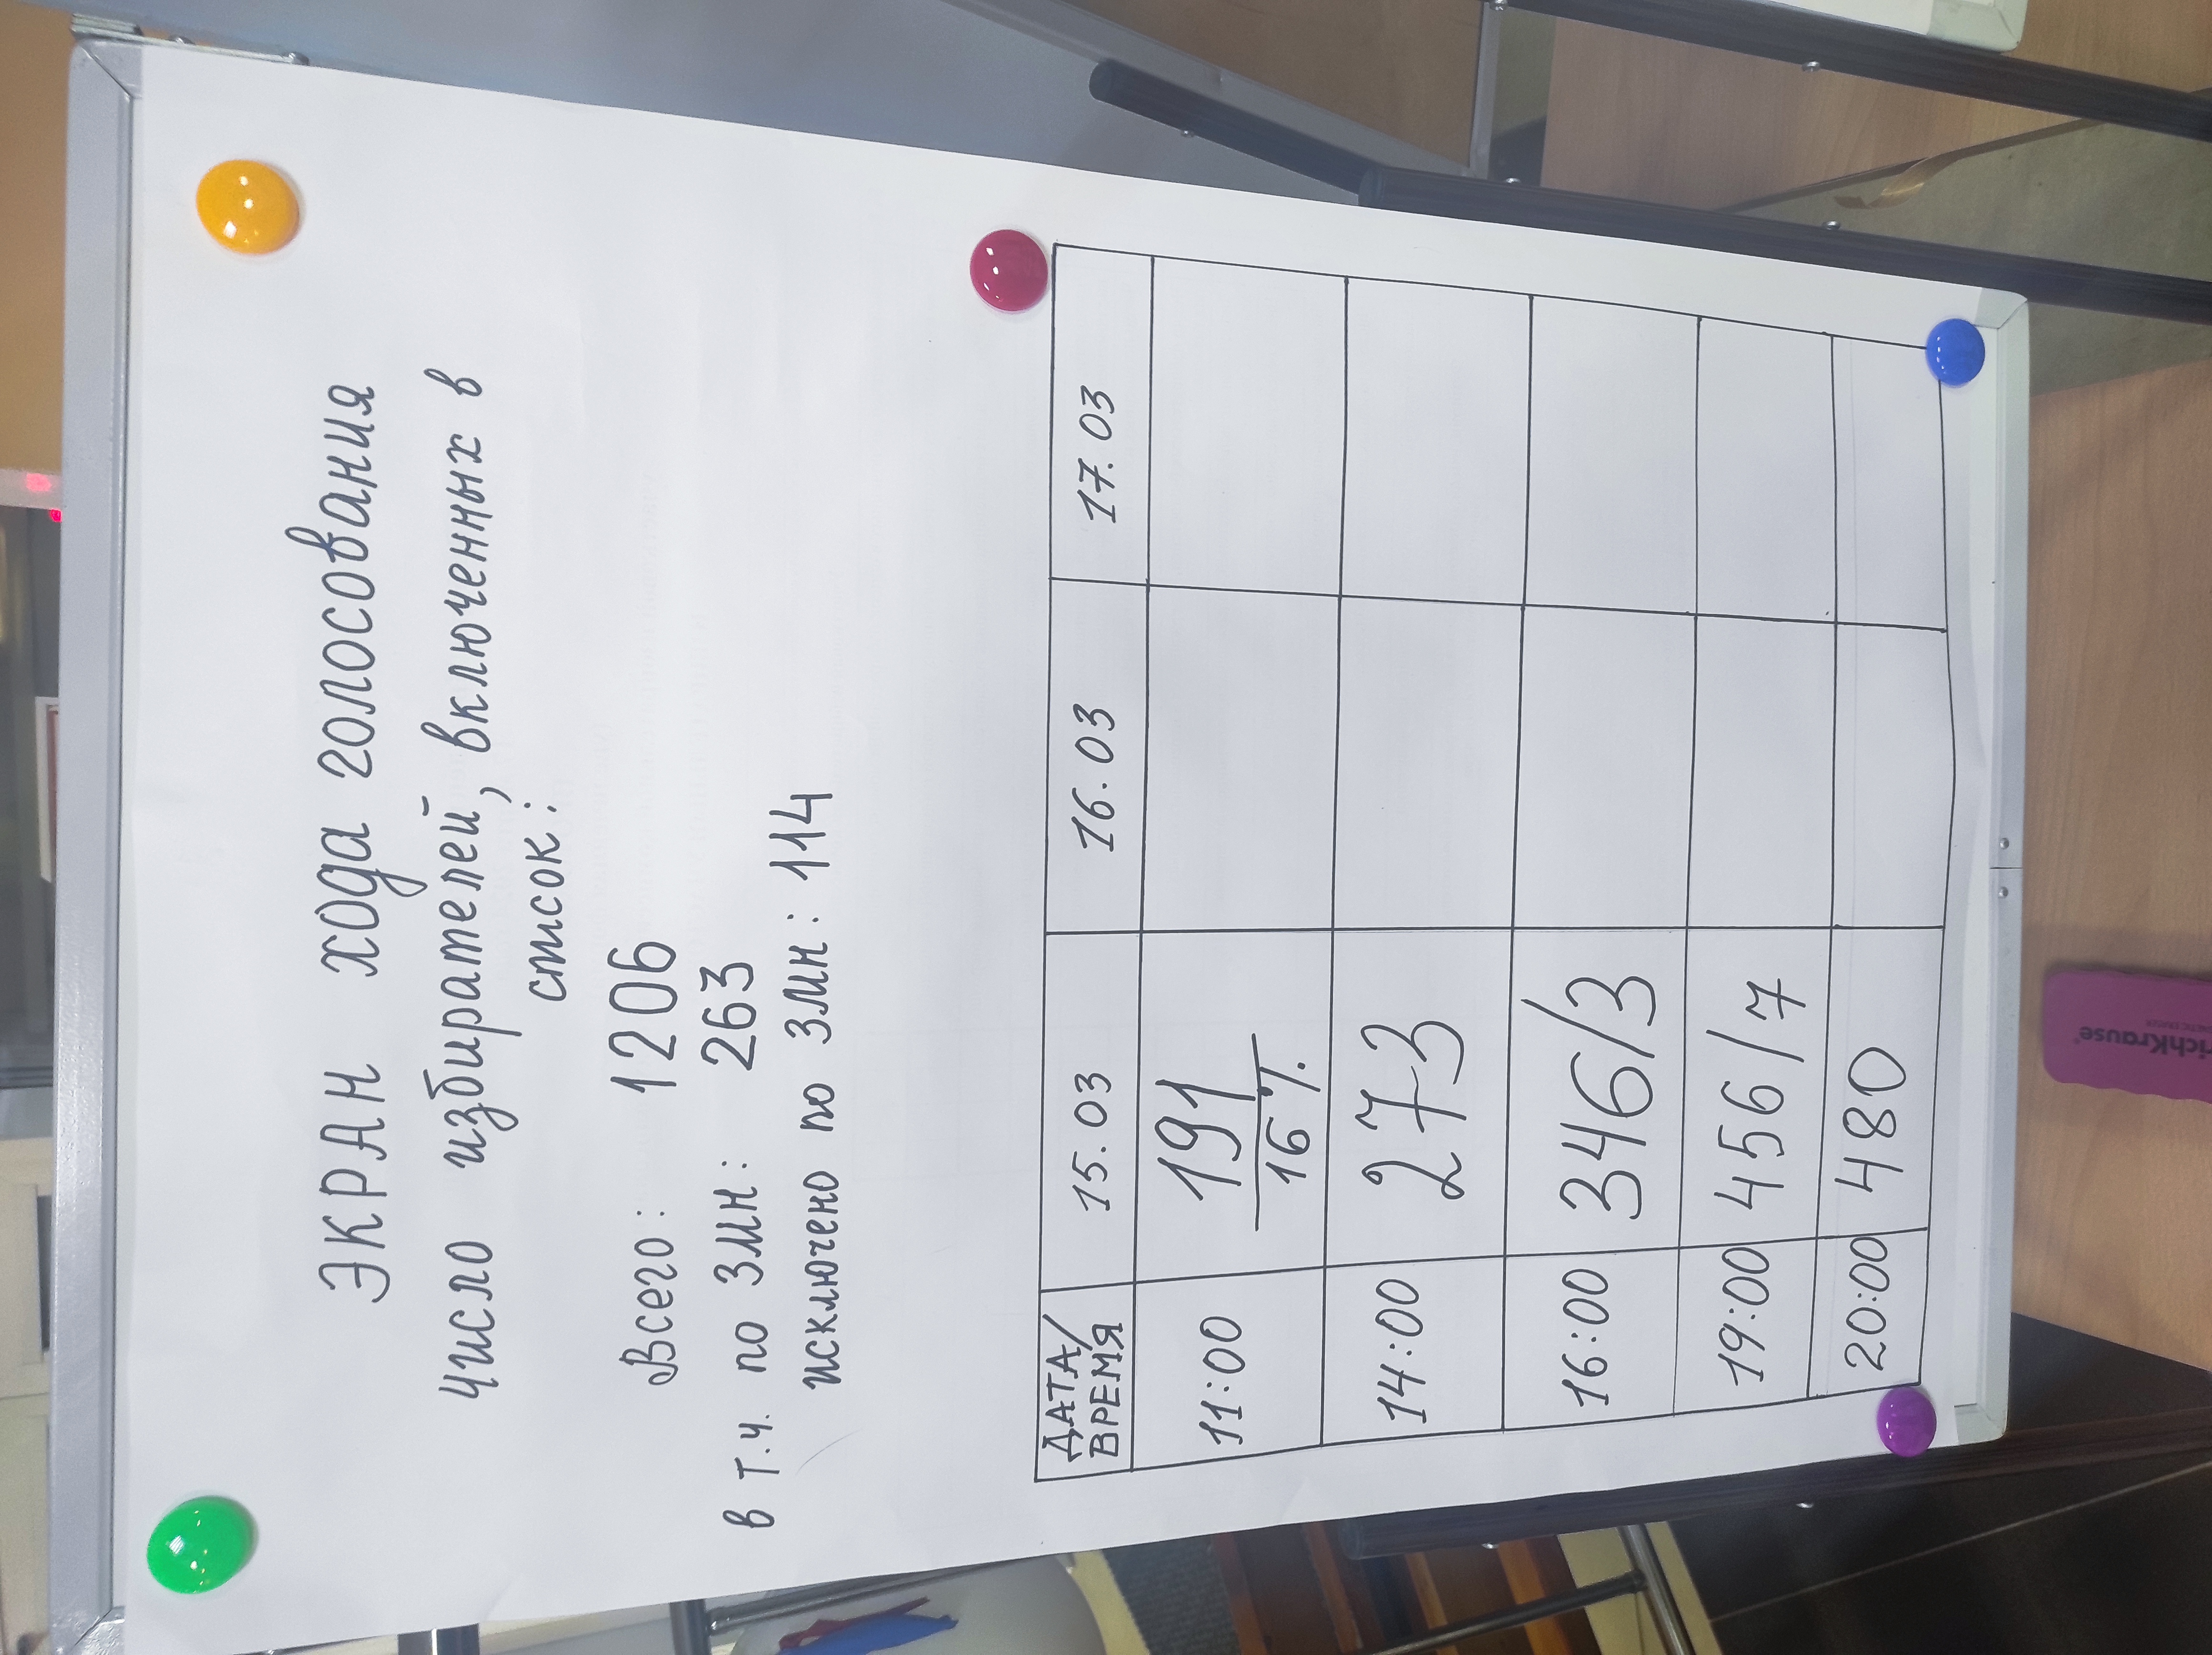 ЭКРАН хода голосования
Число избирателей, включенных в
список:
Всего: 1206
в т.ч. по ЗМН: 263
исключено по ЗМН: 114
ДАТА/ВРЕМЯ 15.03 16.03 17.03
11:00 191
16%
14:00 273
16:00 346/3
19:00 456/7
20:00 480
richKrause